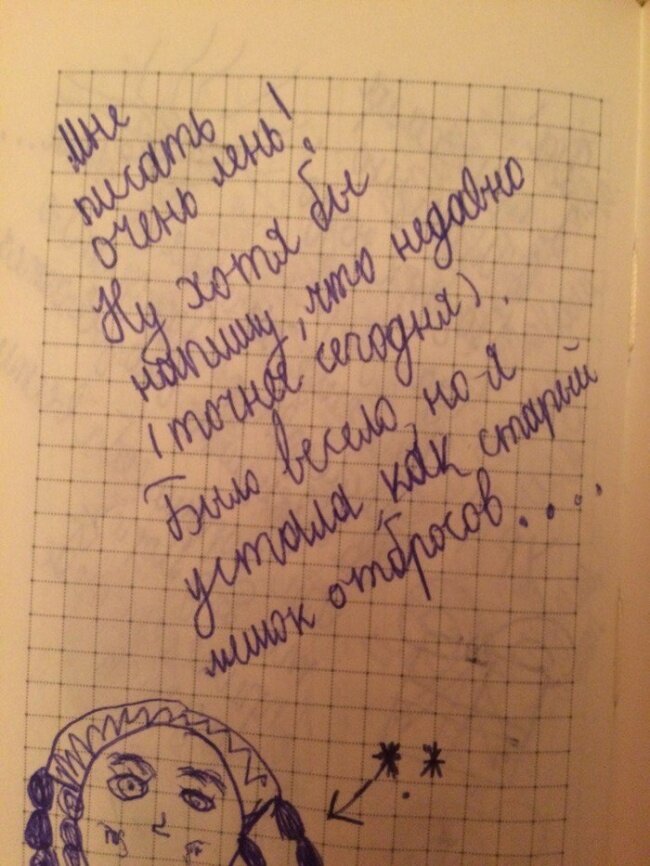 Мне
писать
очень лень!
Ну хотя бы
напишу, что недавно
(точнее сегодня).
Было весело, но я
устала, как старый
мешок отбросов....
**